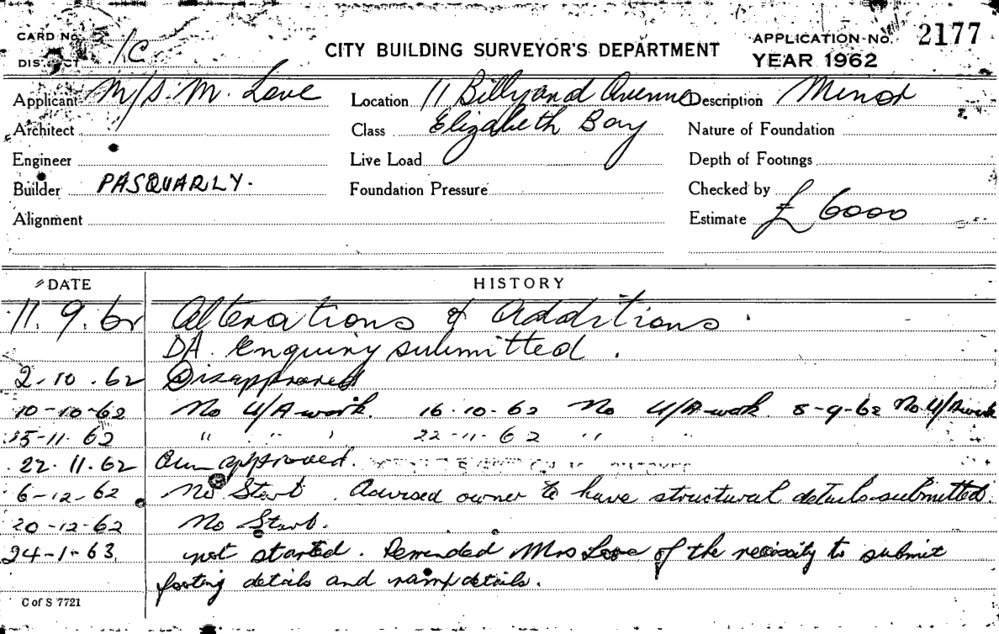 CARD No.
DISTRICT 1C
CITY BUILDING SURVEYOR'S DEPARTMENT
APPLICATION No. 2177
YEAR 1962
Applicant M/s. M. Love
Location 11 Billyard Avenue
Elizabeth Bay
Description Minor
Architect
Class
Nature of Foundation
Engineer
Live Load
Depth of Footings
Builder PASQUARLY.
Foundation Pressure
Checked by
Alignment
Estimate £ 6000
DATE HISTORY
11.9.62 Alterations & Additions.
DA. Enquiry submitted.
2.10.62 Disapproved
10-10-62 No U/A work. 16.10.62 No U/A work 8-9-62 No U/A work
15-11.62 " " " 22-11.62 " "
22.11.62 approved.
6-12-62 No Start. Advised owner to have structural details submitted.
20-12-62 No Start.
24-1-63. not started. Reminded Mrs Love of the necissity to submit
footing details and ramp details.
C of S 7721